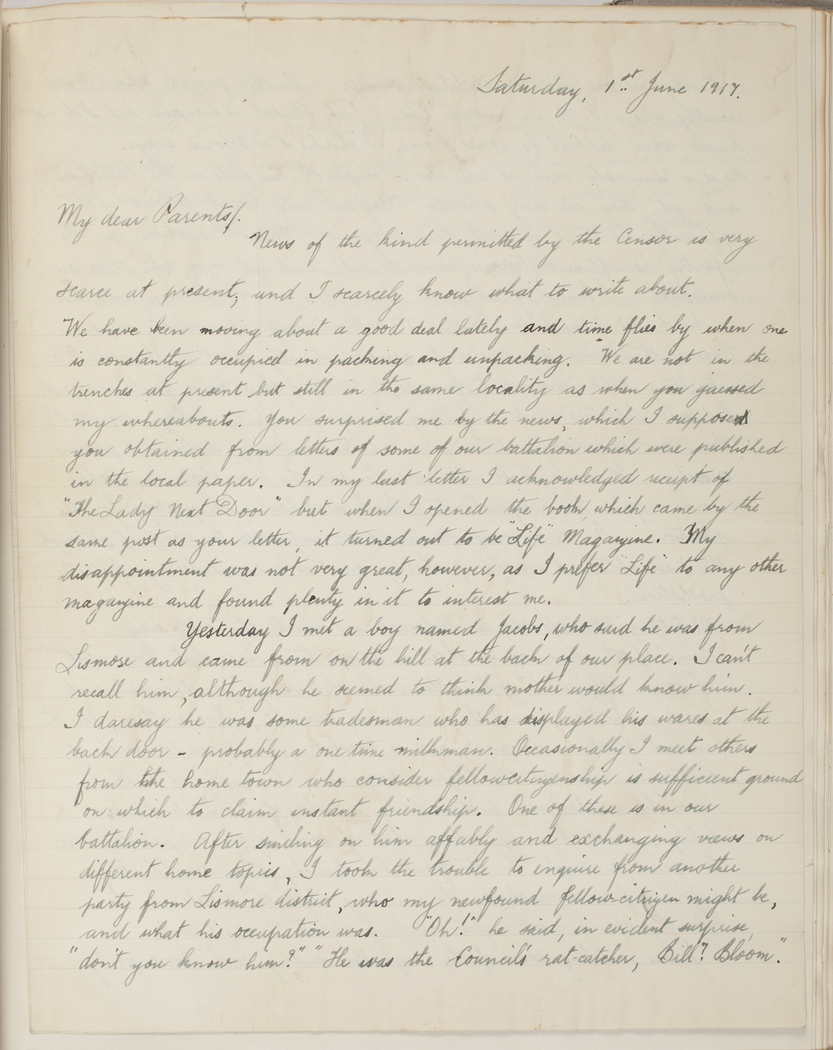 Saturday, 1st June 1917.
My dear Parents/.
News of the kind permitted by the Censor is very
scarce at present, and I scarcely know what to write about.
We have been moving about a good deal lately and time flies by when one
is constantly occupied in packing and unpacking. We are not in the
trenches at present but still in the same locality as when you guessed
my whereabouts. You surprised me by the news, which I suppose
you obtained from letters of some of our battalion which were published
in the local paper. In my last letter I acknowledged receipt of
"The Lady Next Door" but when I opened the book which came by the
same post as your letter, it turned out to be "Life" Magazine. My
disappointment was not very great, however, as I prefer "Life" to any other
magazine and found plenty in it to interest me.
Yesterday I met a boy named Jacobs, who said he was from
Lismore and came from on the hill at the back of our place. I can't
recall him, although he seemed to think mother would know him.
I daresay he was some tradesman who has displayed his wares at the
back door - probably a one time milkman. Occasionally I meet others
from the home town who consider fellowcitizenship is sufficient ground
on which to claim instant friendship. One of these is in our
battalion. After smiling on him affably and exchanging views on
different home topics, I took the trouble to enquire from another
party from Lismore district, who my newfound fellow-citizen might be,
and what his occupation was. "Oh!" he said, in evident surprise,
"don't you know him?" "He was the Council's rat-catcher, Bill? Bloom".